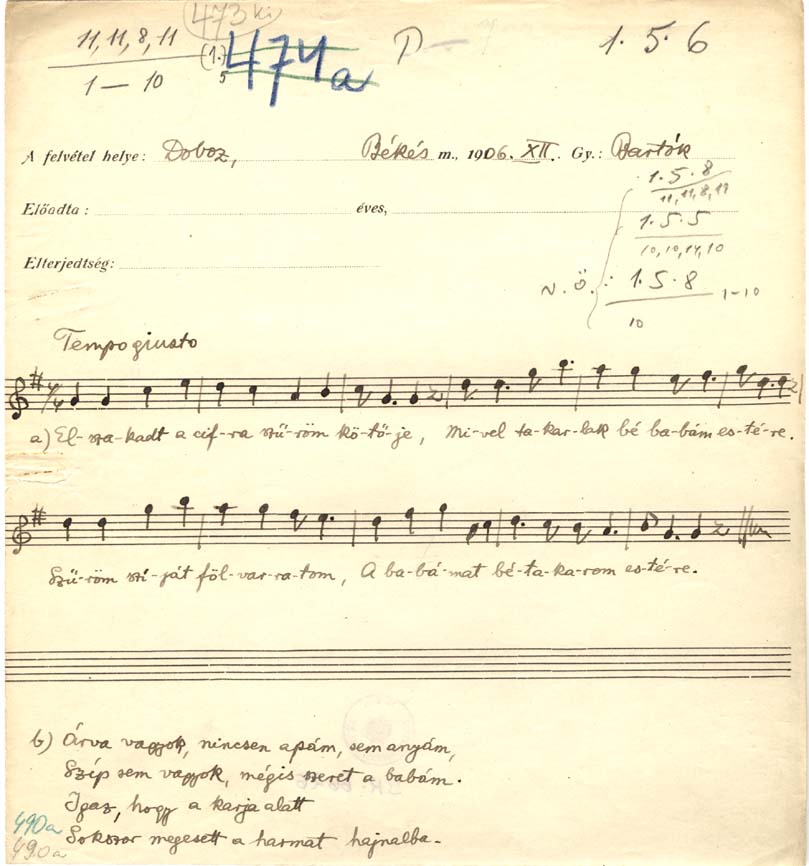 473 ki
11, 11, 8, 11
1 — 10
(1.)
5
474a
1. 5. 6
A felvétel helye: Doboz, Békés m., 1906. XII. Gy.: Bartók
1. 5. 8
11, 11, 8, 11
Előadta: éves,
1. 5. 5
10, 10, 14, 10
Elterjedtség:
v. ö.: 1. 5. 8 1–10
10
Tempo giusto
a) El-sza-kadt a cif-ra szű-röm kö-tő-je, Mi-vel ta-kar-lak bé ba-bám es-té-re.
Szű-röm szí-ját föl-var-ra-tom, A ba-bá-mat bé-ta-ka-rom es-té-re.
b) Árva vagyok, nincsen apám, sem anyám,
Szíp sem vagyok, mégis szeret a babám.
Igaz, hogy a karja alatt
Sokszor megesett a harmat hajnalba.
490a
490a